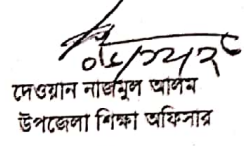 দেওয়ান নাজমুল আলম
উপজেলা শিক্ষা অফিসার